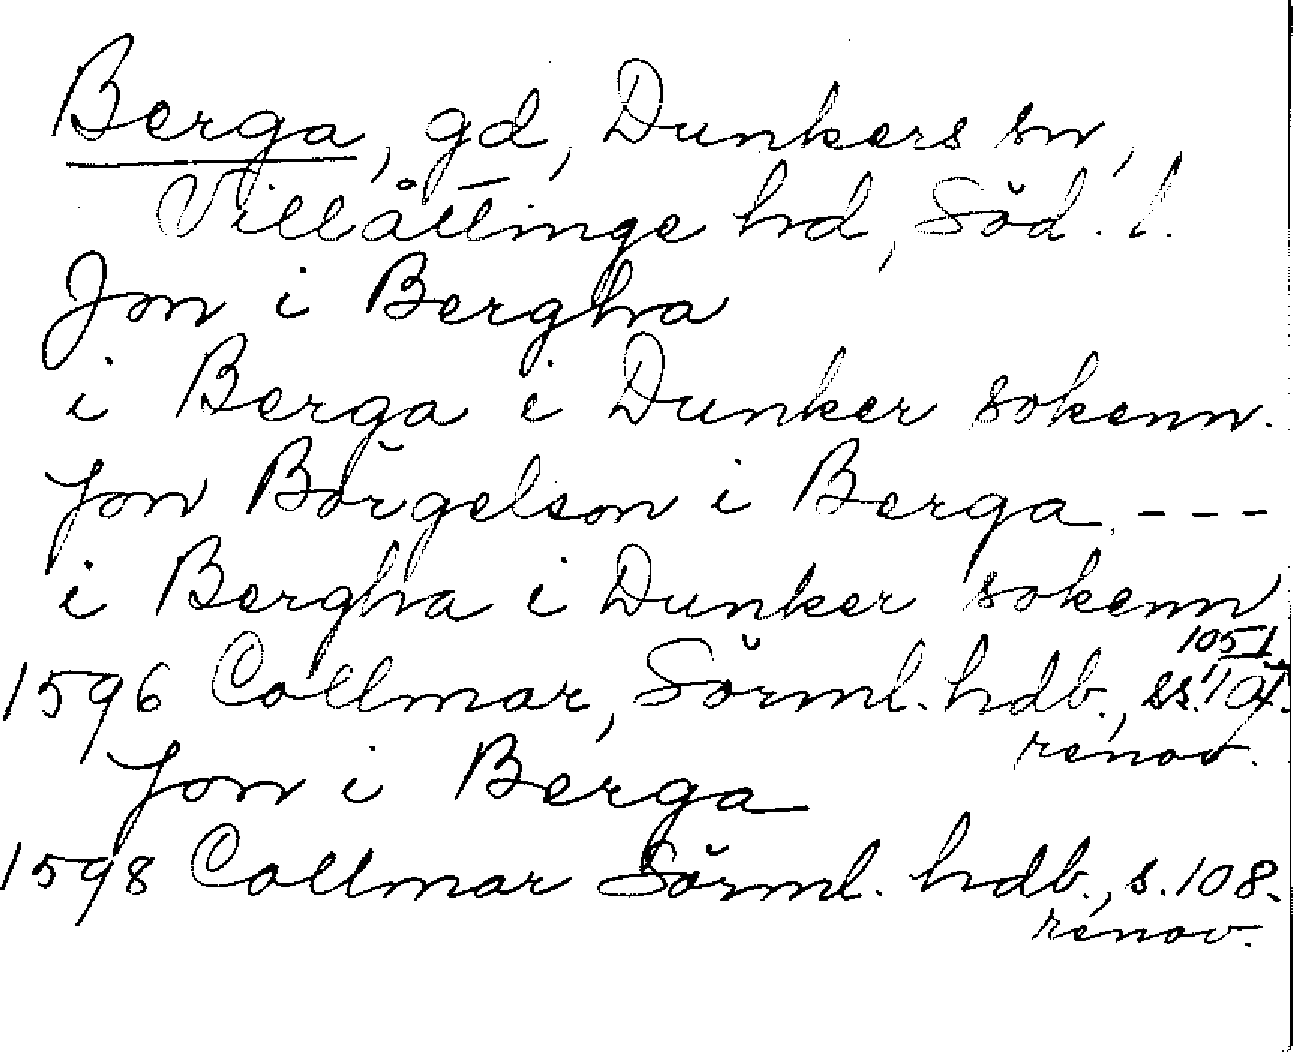 Berga, gd, Dunkers sn,
Villåttinge hd, Söd. l.
Jon i Bergha
i Berga i Dunker sokenn.
Jon Börgelson i Berga. ---
i Bergha i Dunker sokenn
1596 Collmar, Sörml. hdb., ss. 105,
renov.
Jon i Berga
1598 Collmar Sörml. hdb., s. 108.
renov.